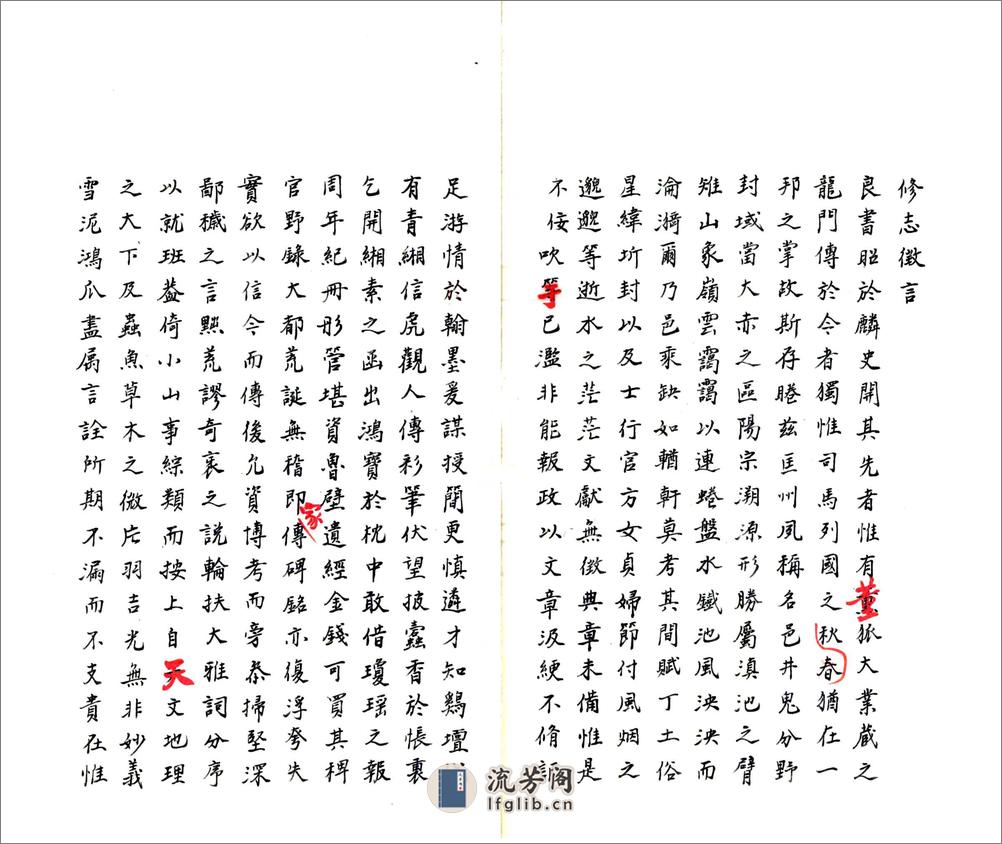 修志徵言
良書昭於麟史開其先者惟有董狐大業藏之
龍門傳於今者獨惟司馬列國之秋春猶在一
邦之掌故斯存睠茲匡州夙稱名邑井鬼分野
封域當大赤之區陽宗溯源形勝屬滇池之臂
雉山象嶺雲靄靄以連蜷盤水鐵池風泱泱而
淪漪爾乃邑乘缺如輶軒莫考其間賦丁土俗
星緯圻封以及士行官方女貞婦節付風烟之
邈邈等逝水之茫茫文獻無徵典章未備惟是
不佞吹竽已濫非能報政以文章汲綆不脩詎
足游情於翰墨爰謀授簡更慎遴才知鷄壇
有青緗信虎觀人傳彩筆伏望披蠹香於帳裏
乞開緗素之函出鴻寶於枕中敢借瓊瑶之報
周年紀冊彤管堪資魯壁遺經金錢可買其稗
官野錄大都荒誕無稽即家傳碑銘亦復浮夸失
實欲以信今而傳後允資博考而旁叅掃堅深
鄙穢之言點荒謬奇衺之說輪扶大雅詞分序
以就班葢倚小山事綜類而按上自天文地理
之大下及蟲魚草木之微片羽吉光無非妙義
雪泥鴻爪盡屬言詮所期不漏而不支貴在惟
流芳阁
lfglib.cn